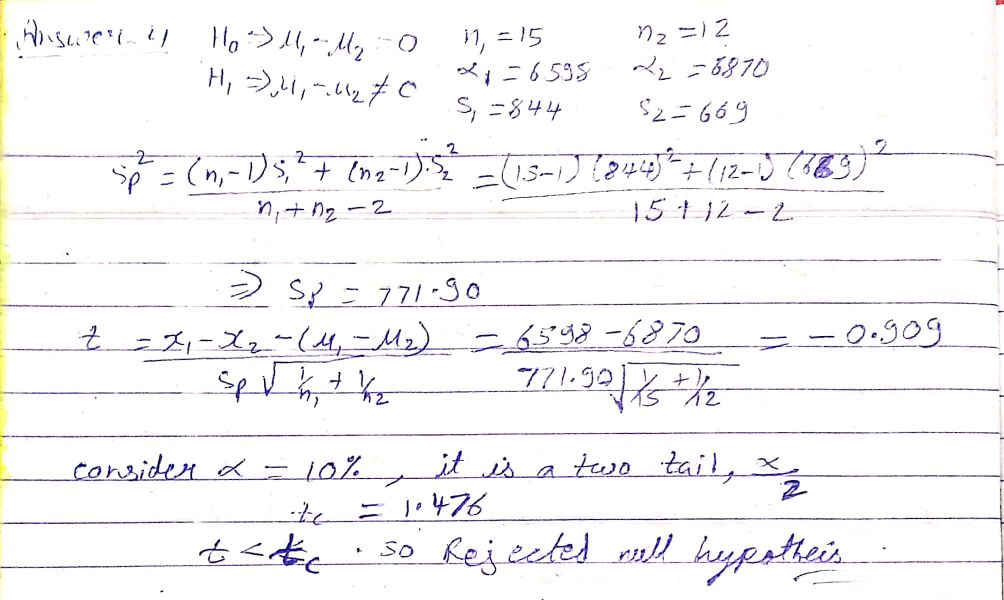 Answer. 4) H₀ => μ₁-μ₂ = 0 n₁ = 15 n₂ = 12
H₁ => μ₁-μ₂ ≠ 0 x₁ = 6598 x₂ = 6870
S₁ = 844 S₂ = 669
Sp² = (n₁-1)S₁² + (n₂-1).S₂² / n₁+n₂-2 = (15-1)(844)² + (12-1)(669)² / 15+12-2
=> Sp = 771.90
t = x₁-x₂-(μ₁-μ₂) / Sp√(1/n₁ + 1/n₂) = 6598-6870 / 771.90√(1/15 + 1/12) = -0.909
consider α = 10%, it is a two tail, α/2
tc = 1.476
t < tc . so Rejected null hypotheis.